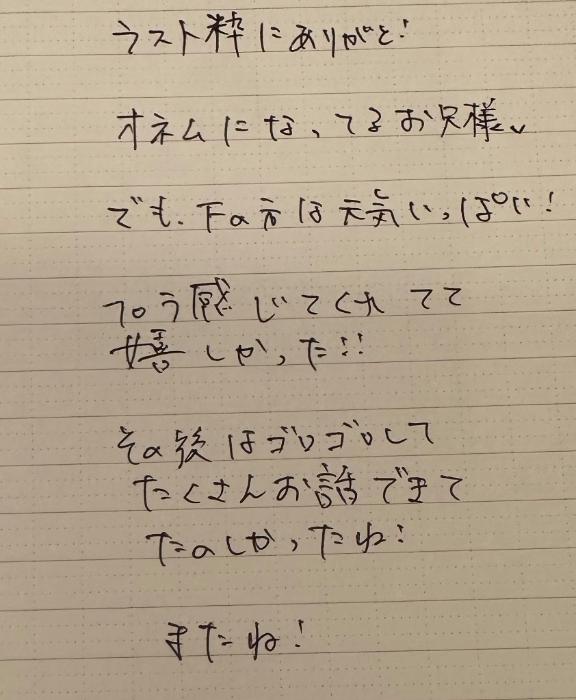 ラスト枠にありがと!
オネムになってるお兄様、
でも、下の方は元気いっぱい!
いっぱい感じてくれてて
嬉しかった!!
その後はゴロゴロして
たくさんお話できて
たのしかったね!
またね!